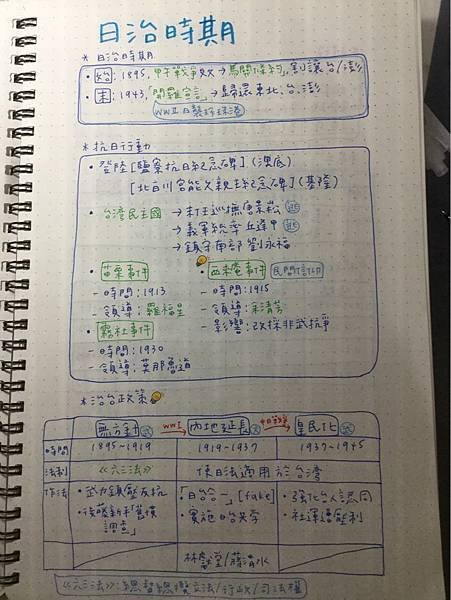 日治時期
* 日治時期
• 始: 1895,甲午戰爭敗→馬關條約,割讓台/澎
• 末: 1943,「開羅宣言」→歸還東北、台、澎
WWII 日襲珍珠港
* 抗日行動
• 登陸[鹽寮抗日紀念碑](澳底)
[北白川宮能久親王紀念碑](基隆)
• 台灣民主國 → 末任巡撫唐景崧 逃
→ 義軍統率 丘逢甲 逃
→ 鎮守南部 劉永福
• 苗栗事件 • 西來庵事件 民間信仰
- 時間:1913 - 時間:1915
- 領導:羅福星 - 領導:余清芳
• 霧社事件 - 影響:改採非武抗爭
- 時間:1930
- 領導:莫那魯道
* 治台政策
無方針 式 WWI 內地延長 皇民化 式
時間 1895~1919 1919~1937 1937~1945
法制 《六三法》 使日法適用於台灣
作法 • 武力鎮壓反抗 •「日台合一」[fake] • 強化台人認同
• 後藤新平「舊慣 • 實施日台共學 • 社運遭壓制
調查」
林獻堂/蔣渭水
《六三法》:總督總攬立法/行政/司法權